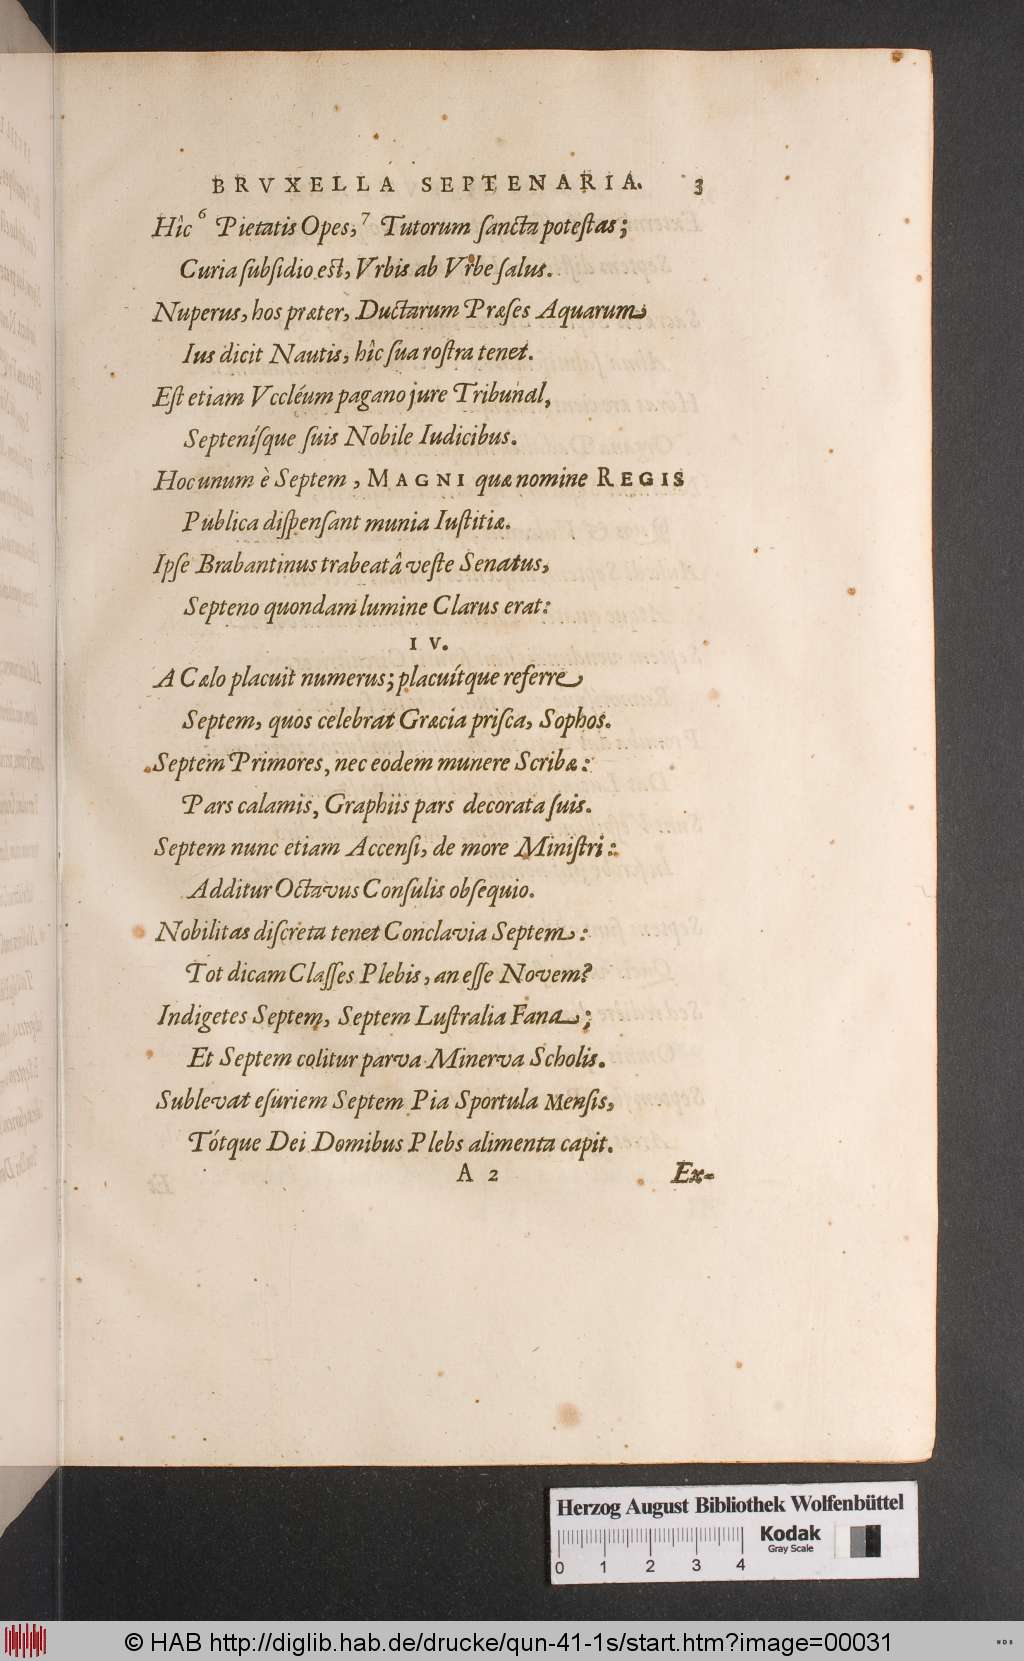 BRVXELLA SEPTENARIA. 3
Hîc ⁶ Pietatis Opes, ⁷ Tutorum ſancta poteſtas;
Curia ſubſidio eſt, Vrbis ab Vrbe ſalus.
Nuperus, hos præter, Ductarum Præſes Aquarum
Ius dicit Nautis, hîc ſua roſtra tenet.
Eſt etiam Vccléum pagano jure Tribunal,
Septeníſque ſuis Nobile Iudicibus.
Hoc unum è Septem, MAGNI quæ nomine REGIS
Publica diſpenſant munia Iuſtitiæ.
Ipſe Brabantinus trabeatâ veſte Senatus,
Septeno quondam lumine Clarus erat:
IV.
A Cælo placuit numerus; placuítque referre
Septem, quos celebrat Græcia priſca, Sophos.
Septem Primores, nec eodem munere Scribæ:
Pars calamis, Graphiis pars decorata ſuis.
Septem nunc etiam Accenſi, de more Miniſtri:
Additur Octavus Conſulis obſequio.
Nobilitas diſcreta tenet Conclavia Septem:
Tot dicam Claſſes Plebis, an eſſe Novem?
Indigetes Septem, Septem Luſtralia Fana;
Et Septem colitur parva Minerva Scholis.
Sublevat eſuriem Septem Pia Sportula Menſis,
Tótque Dei Domibus Plebs alimenta capit.
A 2 Ex-
Herzog August Bibliothek Wolfenbüttel
Kodak
Gray Scale
0 1 2 3 4
© HAB http://diglib.hab.de/drucke/qun-41-1s/start.htm?image=00031